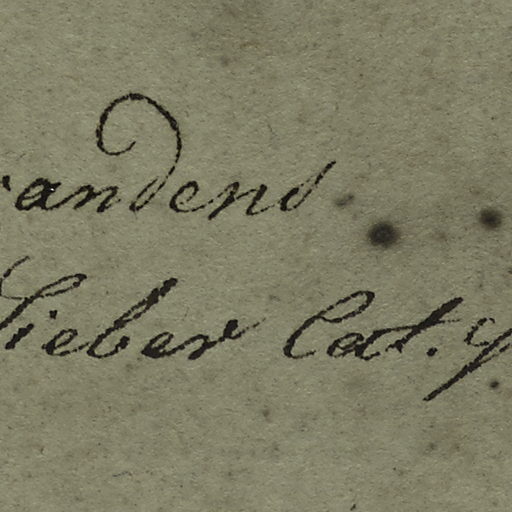 andens
Sieber Cat.